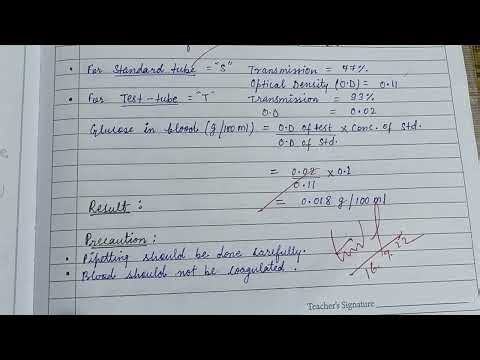 • For Standard tube = "S" Transmission = 77%
Optical Density (O.D) = 0.11
• For Test-tube = "T" Transmission = 93%
O.D = 0.02
Glucose in blood (g/100 ml) = O.D of test x Conc. of Std.
O.D of Std.
= 0.02 x 0.1
0.11
= 0.018 g/100 ml
Result :
Precaution :
• Pipetting should be done carefully.
• Blood should not be coagulated.
Teacher's Signature